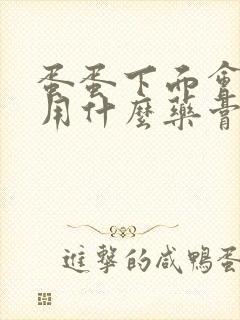 蛋蛋下面會
用什麼藥膏
進擊的咸鴨蛋